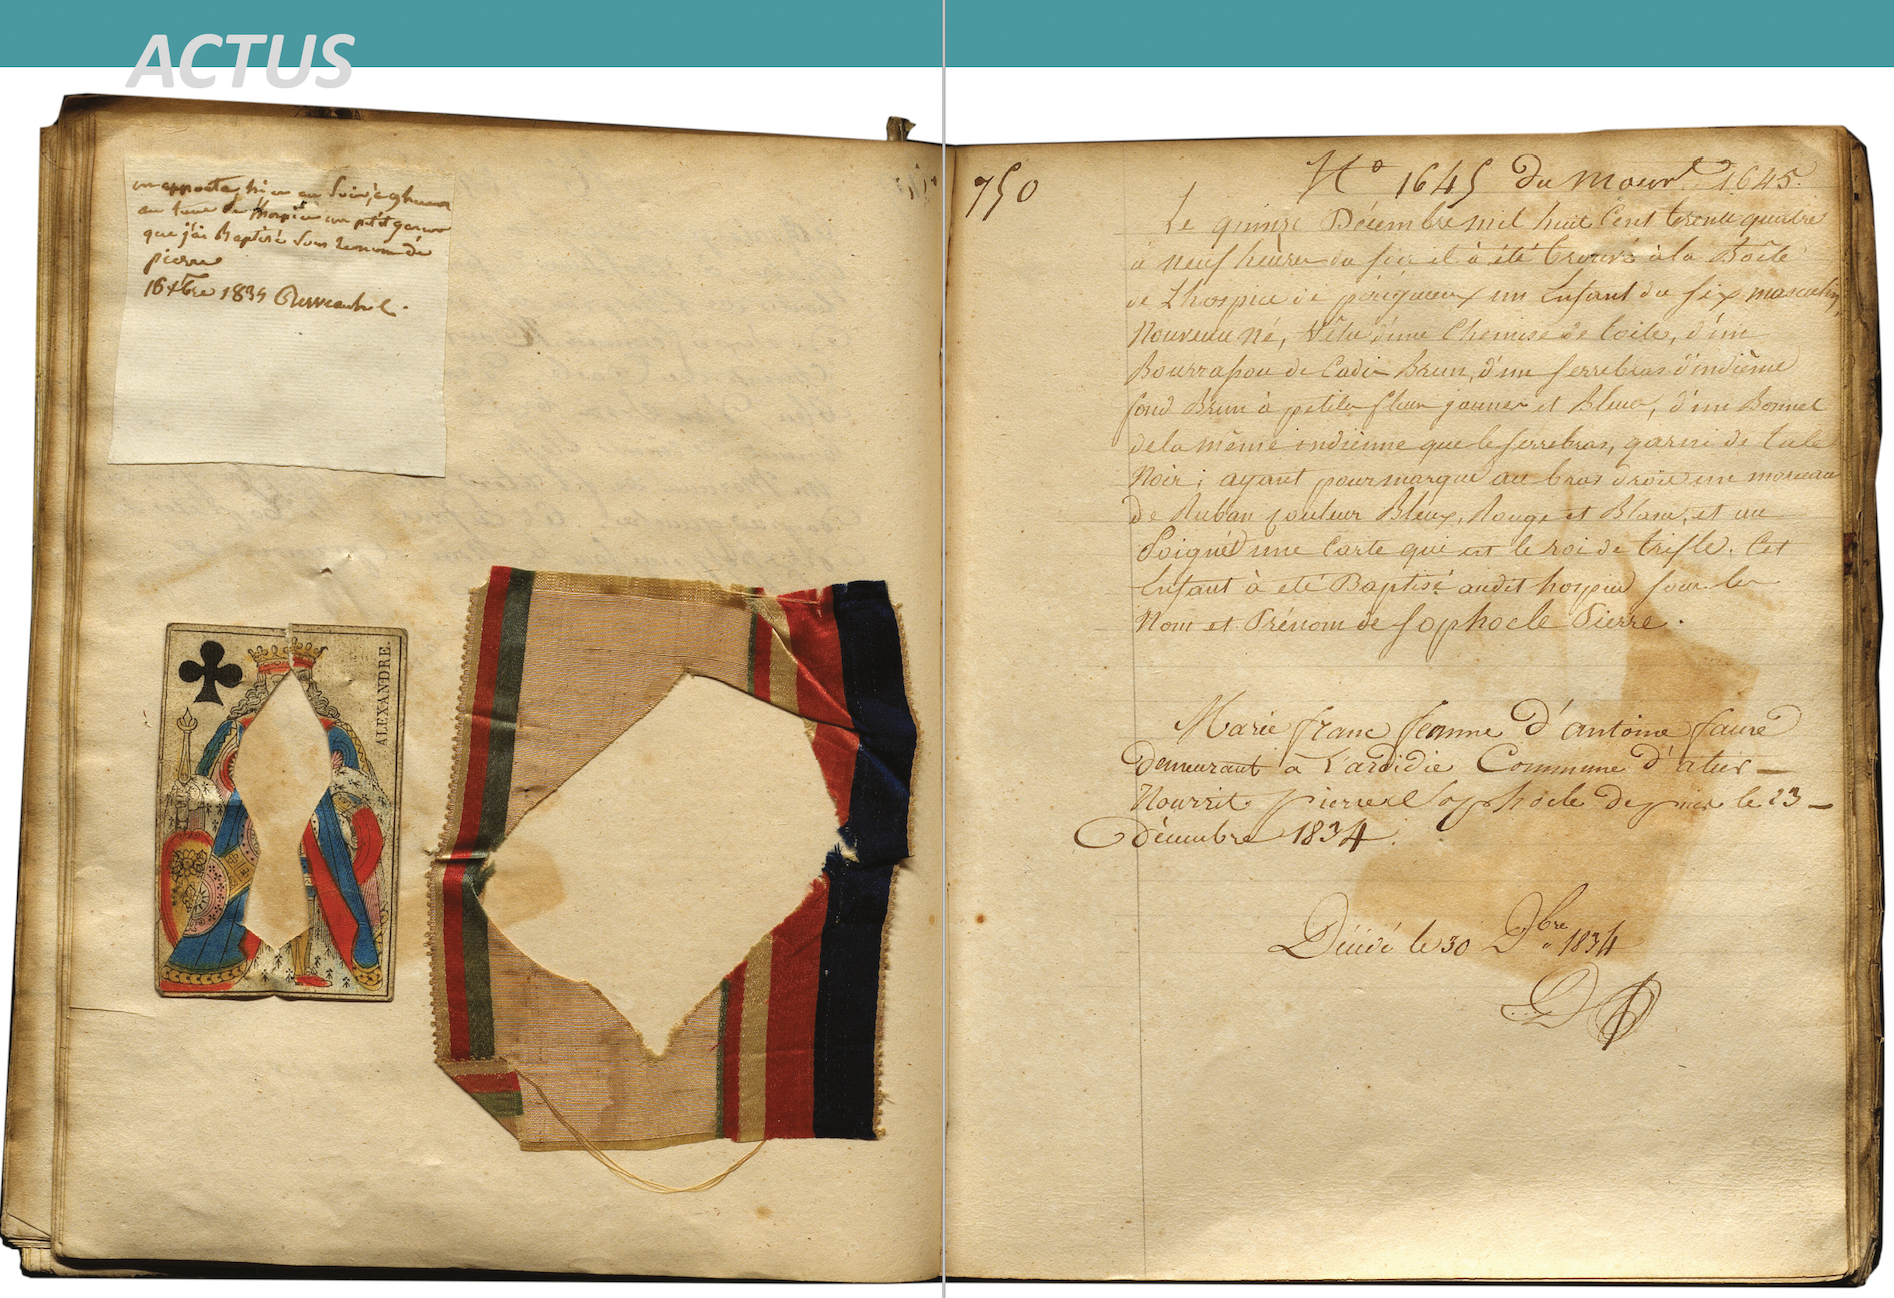 ACTUS
on apporta hier au soir, à 9 heures
au tour de l'hospice un petit garcon
que j'ai Baptisé sous le nom de
pierre
16 xbre 1834
ALEXANDRE.
750
No 1645 du mouvt 1645.
Le quinze Décembre mil huit Cent trente quatre
à neuf heures du soir il à été trouvé à la Boîte
de L'hospice de périgueux un Enfant du sex masculin,
Nouveau Né, Vêtu d'une Chemise de toile, d'un
Bourrassou de Cadis Brun, d'un serrebras d'indiènne
fond Brun à petites fleurs jaunes et Bleues, d'un Bonnet
de la même indiènne que le serrebras, garni de tule
Noir; ayant pour marque au bras droit un morceau
de Ruban couleur Bleux, Rouge et Blanc, et au
Poignet une Carte qui est le roi de trifle. Cet
Enfant à eté Baptisé audit hospice sous les
Nom et Prénom de Sophocle Pierre.
Marie franc femme d'antoine faure
demeurant a Lardidie Commune d'atur
Nourrit pierre Sophocle depuis le 23
Décembre 1834.
Décédé le 30 Dbre 1834